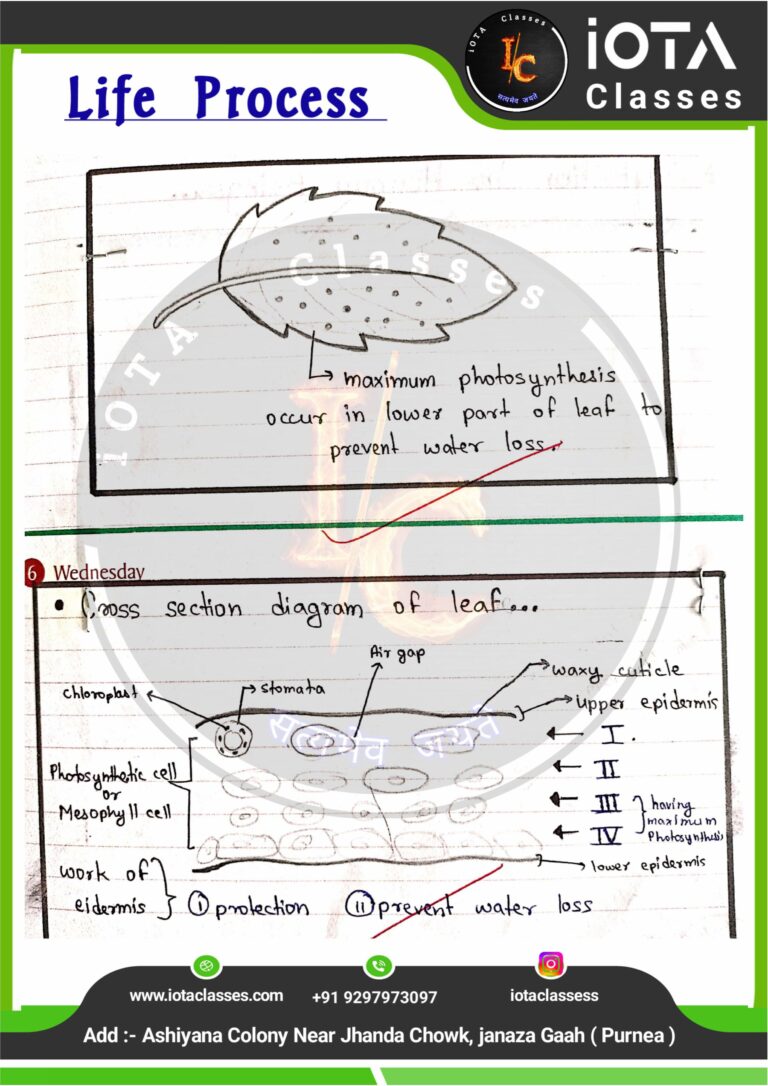 iOTA Classes
I/C
सत्यमेव जयते
iOTA
Classes
Life Process
iOTA Classes
→ maximum photosynthesis
occur in lower part of leaf to
prevent water loss.
6 Wednesday
• Cross section diagram of leaf...
Air gap
waxy cuticle
chloroplast
stomata
upper epidermis
सत्यमेव जयते
I.
II
Photosynthetic cell
or
Mesophyll cell
III
IV
having
maximum
Photosynthesis
lower epidermis
work of
eidermis
(i) protection (ii) prevent water loss
www.iotaclasses.com
+91 9297973097
iotaclassess
Add :- Ashiyana Colony Near Jhanda Chowk, janaza Gaah ( Purnea )